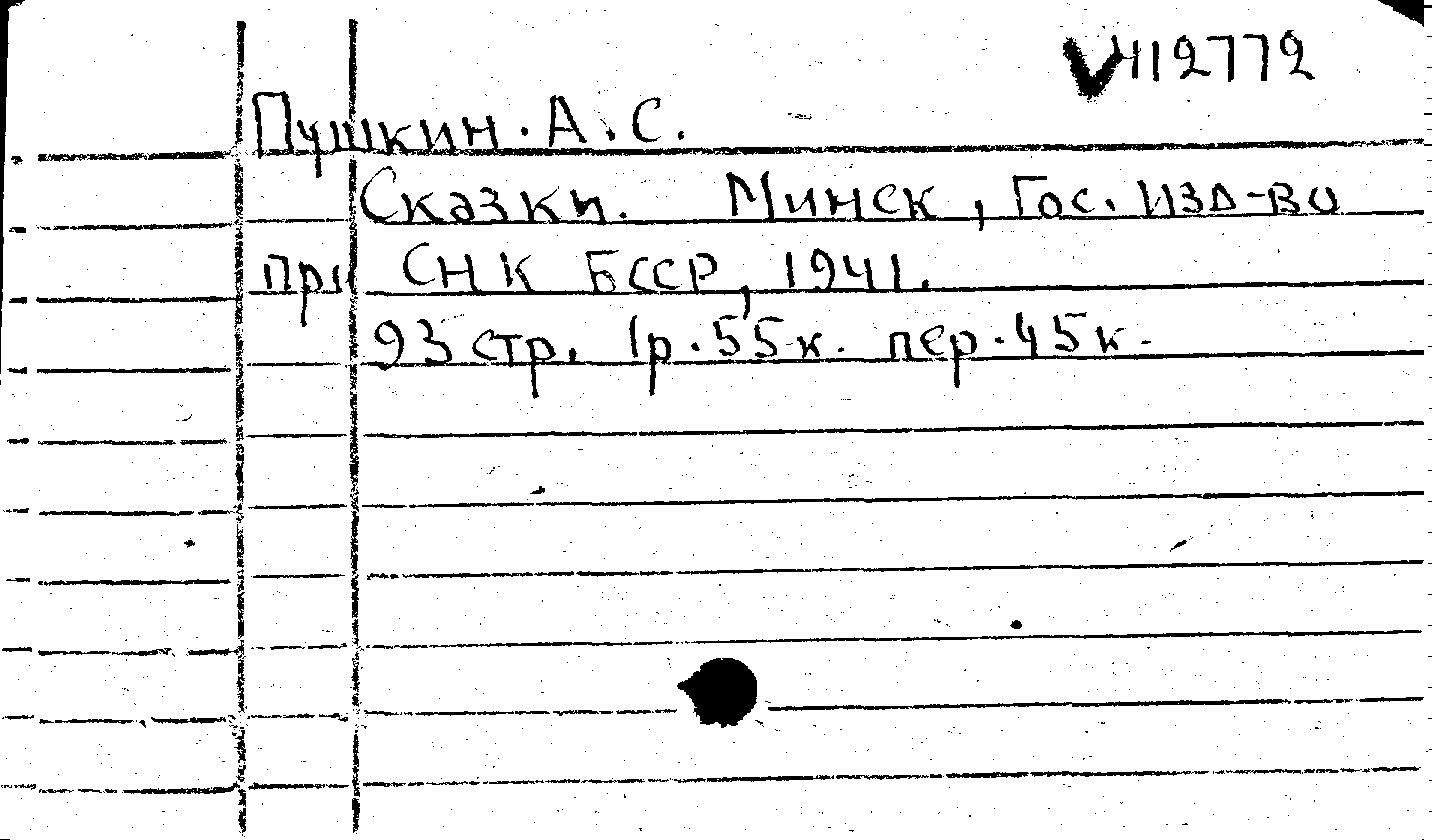 V412772
Пушкин. А. С.
Сказки. Минск, Гос. изд-во
при СНК БССР, 1941.
93 стр. 1р. 55к. пер. 45к.